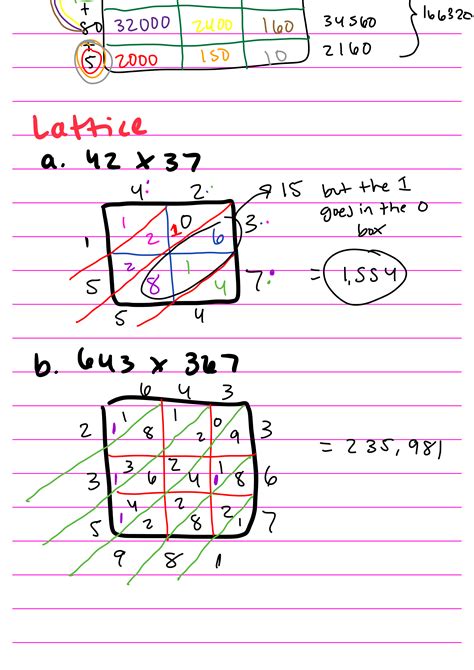 +
80 32000 2400 160 34560 166320
+
5 2000 150 10 2160
Lattice
a. 42 x 37
4 2
1 2 1 0 6 3
1
2 8 1 4 7
5
5 4
→ 15 but the 1
goes in the 0
box
= 1,554
b. 643 x 367
6 4 3
2 1 1 8 1 2 0 9 3
3 1 3 6 2 4 1 1 8 6
5 1 4 2 2 8 2 1 7
9 8 1
= 235,981